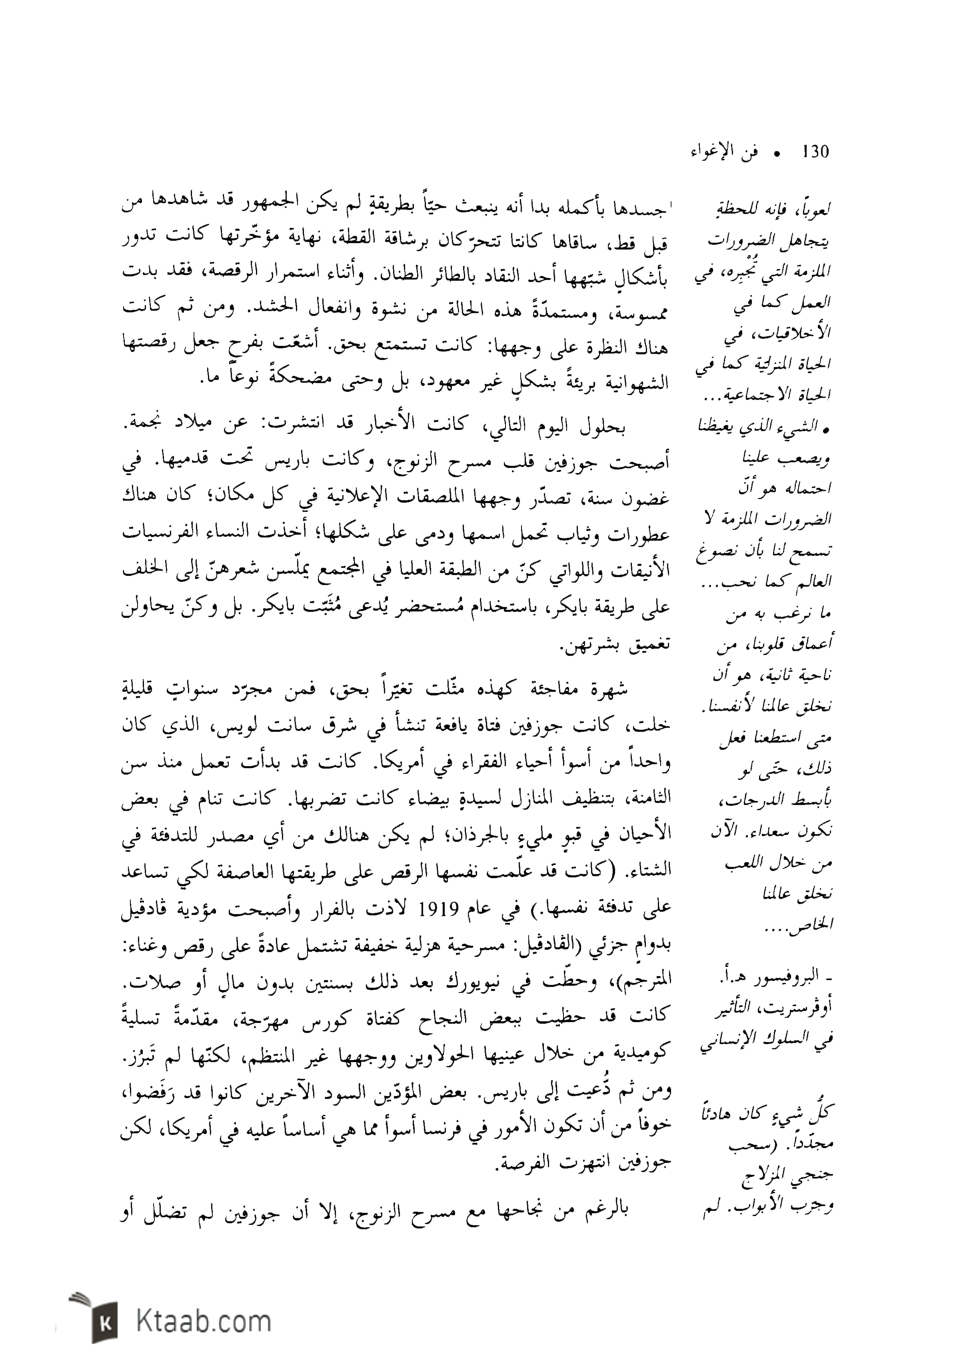 130 • فن الإغواء
جسدها بأكمله بدا أنه ينبعث حيّاً بطريقةٍ لم يكن الجمهور قد شاهدها من
قبل قط، ساقاها كانتا تتحرّكان برشاقة القطة، نهاية مؤخّرتها كانت تدور
بأشكالٍ شبّهها أحد النقاد بالطائر الطنان. وأثناء استمرار الرقصة، فقد بدت
ممسوسة، ومستمدّةً هذه الحالة من نشوة وانفعال الحشد. ومن ثم كانت
هناك النظرة على وجهها: كانت تستمتع بحق. أشعّت بفرحٍ جعل رقصتها
الشهوانية بريئةً بشكلٍ غير معهود، بل وحتى مضحكةً نوعاً ما.
بحلول اليوم التالي، كانت الأخبار قد انتشرت: عن ميلاد نجمة.
أصبحت جوزفين قلب مسرح الزنوج، وكانت باريس تحت قدميها. في
غضون سنة، تصدّر وجهها الملصقات الإعلانية في كل مكان؛ كان هناك
عطورات وثياب تحمل اسمها ودمى على شكلها؛ أخذت النساء الفرنسيات
الأنيقات واللواتي كنّ من الطبقة العليا في المجتمع يملّسن شعرهنّ إلى الخلف
على طريقة بايكر، باستخدام مُستحضر يُدعى مُثَبّت بايكر. بل وكنّ يحاولن
تغميق بشرتهن.
شهرة مفاجئة كهذه مثّلت تغيّراً بحق، فمن مجرّد سنواتٍ قليلةٍ
خلت، كانت جوزفين فتاة يافعة تنشأ في شرق سانت لويس، الذي كان
واحداً من أسوأ أحياء الفقراء في أمريكا. كانت قد بدأت تعمل منذ سن
الثامنة، بتنظيف المنازل لسيدةٍ بيضاء كانت تضربها. كانت تنام في بعض
الأحيان في قبوٍ مليءٍ بالجرذان؛ لم يكن هنالك من أي مصدر للتدفئة في
الشتاء. (كانت قد علّمت نفسها الرقص على طريقتها العاصفة لكي تساعد
على تدفئة نفسها.) في عام 1919 لاذت بالفرار وأصبحت مؤدية ڤادڤيل
بدوامٍ جزئي (الڤادڤيل: مسرحية هزلية خفيفة تشتمل عادةً على رقص وغناء:
المترجم)، وحطّت في نيويورك بعد ذلك بسنتين بدون مالٍ أو صلات.
كانت قد حظيت ببعض النجاح كفتاة كورس مهرّجة، مقدّمةً تسليةً
كوميدية من خلال عينيها الحولاوين ووجهها غير المنتظم، لكنّها لم تَبرُز.
ومن ثم دُعيت إلى باريس. بعض المؤدّين السود الآخرين كانوا قد رَفَضوا،
خوفاً من أن تكون الأمور في فرنسا أسوأ مما هي أساساً عليه في أمريكا، لكن
جوزفين انتهزت الفرصة.
بالرغم من نجاحها مع مسرح الزنوج، إلا أن جوزفين لم تضلّل أو
لعوباً، فإنه للحظةٍ
يتجاهل الضرورات
الملزمة التي تُجْبِره، في
العمل كما في
الأخلاقيات، في
الحياة المنزليّة كما في
الحياة الاجتماعية...
• الشيء الذي يغيظنا
ويصعب علينا
احتماله هو أنّ
الضرورات الملزمة لا
تسمح لنا بأن نصوغ
العالم كما نحب...
ما نرغب به من
أعماق قلوبنا، من
ناحية ثانية، هو أن
نخلق عالمنا لأنفسنا.
متى استطعنا فعل
ذلك، حتّى لو
بأبسط الدرجات،
نكون سعداء. الآن
من خلال اللعب
نخلق عالمنا
الخاص....
ـ البروفيسور هـ.أ.
أوڤرستريت، التأثير
في السلوك الإنساني
كلُّ شيءٍ كان هادئاً
مجدّداً. (سحب
جنجي المزلاج
وجرّب الأبواب. لم
Ktaab.com